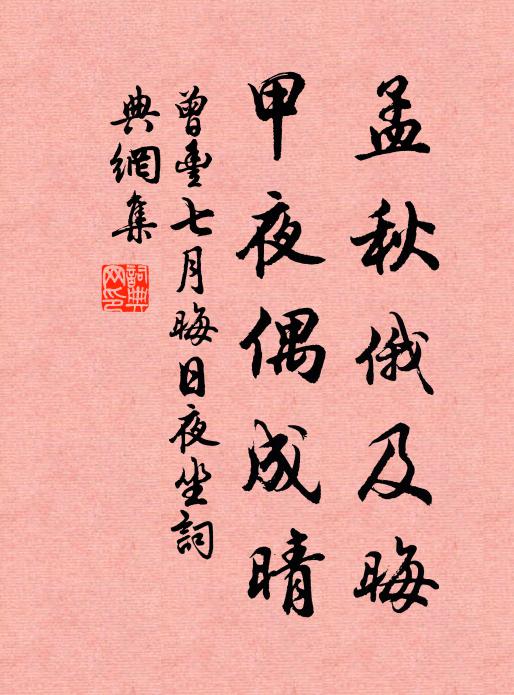 孟秋俄及晦
甲夜偶成晴
曾豐七月晦日夜坐詞
典網集
詞典網印